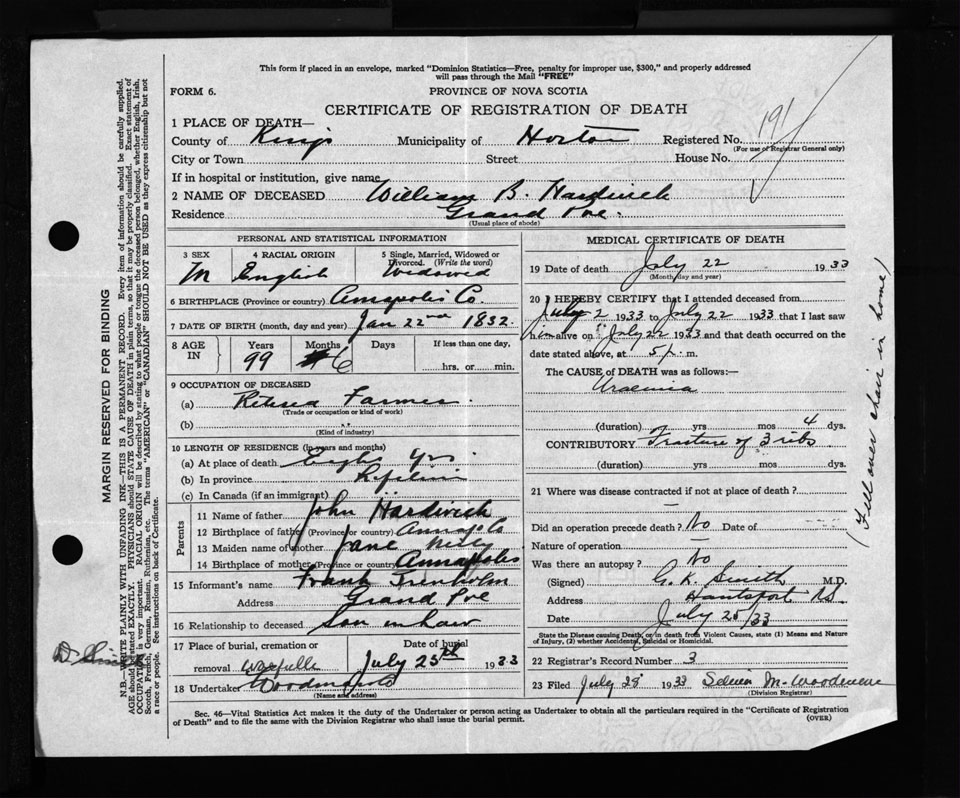 This form if placed in an envelope, marked "Dominion Statistics—Free, penalty for improper use, $300," and properly addressed
will pass through the Mail "FREE"
FORM 6.
PROVINCE OF NOVA SCOTIA
CERTIFICATE OF REGISTRATION OF DEATH
1 PLACE OF DEATH—
County of Kings Municipality of Horton Registered No. 191
(For use of Registrar General only)
City or Town Street House No.
If in hospital or institution, give name
2 NAME OF DECEASED William B. Hardwick
Residence Grand Pre.
(Usual place of abode)
PERSONAL AND STATISTICAL INFORMATION
3 SEX 4 RACIAL ORIGIN 5 Single, Married, Widowed or
Divorced. (Write the word)
M English Widowed
6 BIRTHPLACE (Province or country) Annapolis Co.
7 DATE OF BIRTH (month, day and year) Jan 22nd 1832.
8 AGE IN Years Months Days If less than one day,
99 6 hrs. or min.
9 OCCUPATION OF DECEASED
(a) Retired Farmer
(Trade or occupation or kind of work)
(b)
(Kind of industry)
10 LENGTH OF RESIDENCE (in years and months)
(a) At place of death Eight yrs
(b) In province Lifetime
(c) In Canada (if an immigrant)
Parents
11 Name of father John Hardwick
12 Birthplace of father (Province or country) Annap Co
13 Maiden name of mother Jane
14 Birthplace of mother (Province or country) Annapolis
15 Informant's name Frank Trenholm
Address Grand Pre
16 Relationship to deceased Son in law
17 Place of burial, cremation or Date of burial
removal Wolfville July 25th 1933
18 Undertaker
(Name and address)
MEDICAL CERTIFICATE OF DEATH
19 Date of death July 22 1933
(Month, day and year)
20 I HEREBY CERTIFY that I attended deceased from
July 2 1933 to July 22 1933 that I last saw
him alive on July 22 1933 and that death occurred on
date stated above, at 5 p. m.
The CAUSE of DEATH was as follows:—
Uraemia
(duration) yrs mos 4 dys.
CONTRIBUTORY Fracture of 3 ribs
(duration) yrs mos dys.
(Fell over chair in home)
21 Where was disease contracted if not at place of death?
Did an operation precede death? No Date of
Nature of operation
Was there an autopsy? No
(Signed) G. K. Smith M.D.
Address Hantsport NS
Date July 25/33
State the Disease causing Death, or in death from Violent Causes, state (1) Means and Nature
of Injury, (2) whether Accidental, Suicidal or Homicidal.
22 Registrar's Record Number 3
23 Filed July 28 1933
(Division Registrar)
Sec. 46—Vital Statistics Act makes it the duty of the Undertaker or person acting as Undertaker to obtain all the particulars required in the "Certificate of Registration
of Death" and to file the same with the Division Registrar who shall issue the burial permit.
(OVER)
MARGIN RESERVED FOR BINDING
N.B.—WRITE PLAINLY WITH UNFADING INK—THIS IS A PERMANENT RECORD. Every item of information should be carefully supplied.
AGE should be stated EXACTLY. PHYSICIANS should STATE CAUSE OF DEATH in plain terms, so that it may be properly classified. Exact statement of
OCCUPATION is very important. RACIAL ORIGIN will be described by stating to what people or tongue the deceased person belonged, whether English, Irish,
Scotch, French, German, Russian, Ruthenian, etc. The terms "AMERICAN" or "CANADIAN" SHOULD NOT BE USED as they express citizenship but not
a race or people. See instructions on back of Certificate.